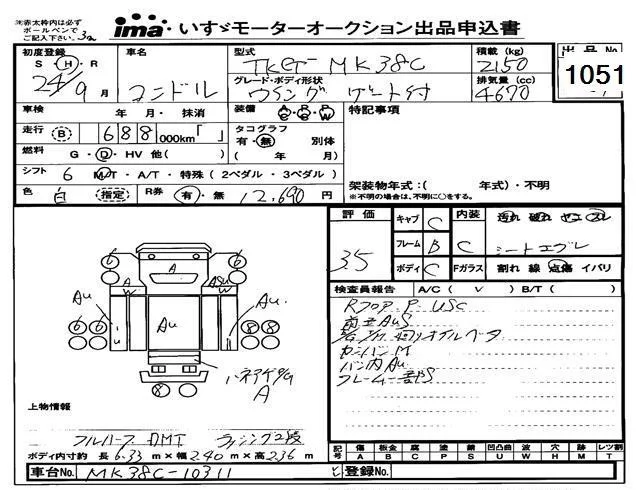 ※赤太枠内は必ず
ボールペンで
ご記入下さい。
ima いすゞモーターオークション出品申込書
初度登録 車名 型式 積載 (kg) 出品No.
S・H・R 24年9月 コンドル MK38C 2150 1051
グレード・ボディ形状 排気量 (cc)
ウイング ゲート付 4670
車検 年 月・抹消 装備 特記事項
走行 B 688 000km「 」 タコグラフ
有・無 別体
燃料 G・D・HV 他( ) ( 年 月)
シフト 6 M/T・A/T・特殊(2ペダル・3ペダル)
架装物年式:( 年式)・不明
色 白 (指定) R券 有・無 12,690 円
※不明の場合は、不明に○をする。
評価 キャブ C 内装 汚れ 破れ ヤニ スレ
3.5 フレーム B C
ボディ C Fガラス 割れ 線 点傷 イバリ
検査員報告 A/C( V) B/T( )
カンバンM
バン内Au
6 6 A A W W
Au Au Au
6 6 8 8
8
A
上物情報
フルハーフ DMT ラッシング2段
ボディ内寸約 長 6.33 m×幅 2.40 m×高 2.36 m
記号 傷 板金 腐 塗 錆 凹凸曲 波 穴 跡 レツ割
A B C P S U W H M T
車台No. MK38C-10311 登録No.